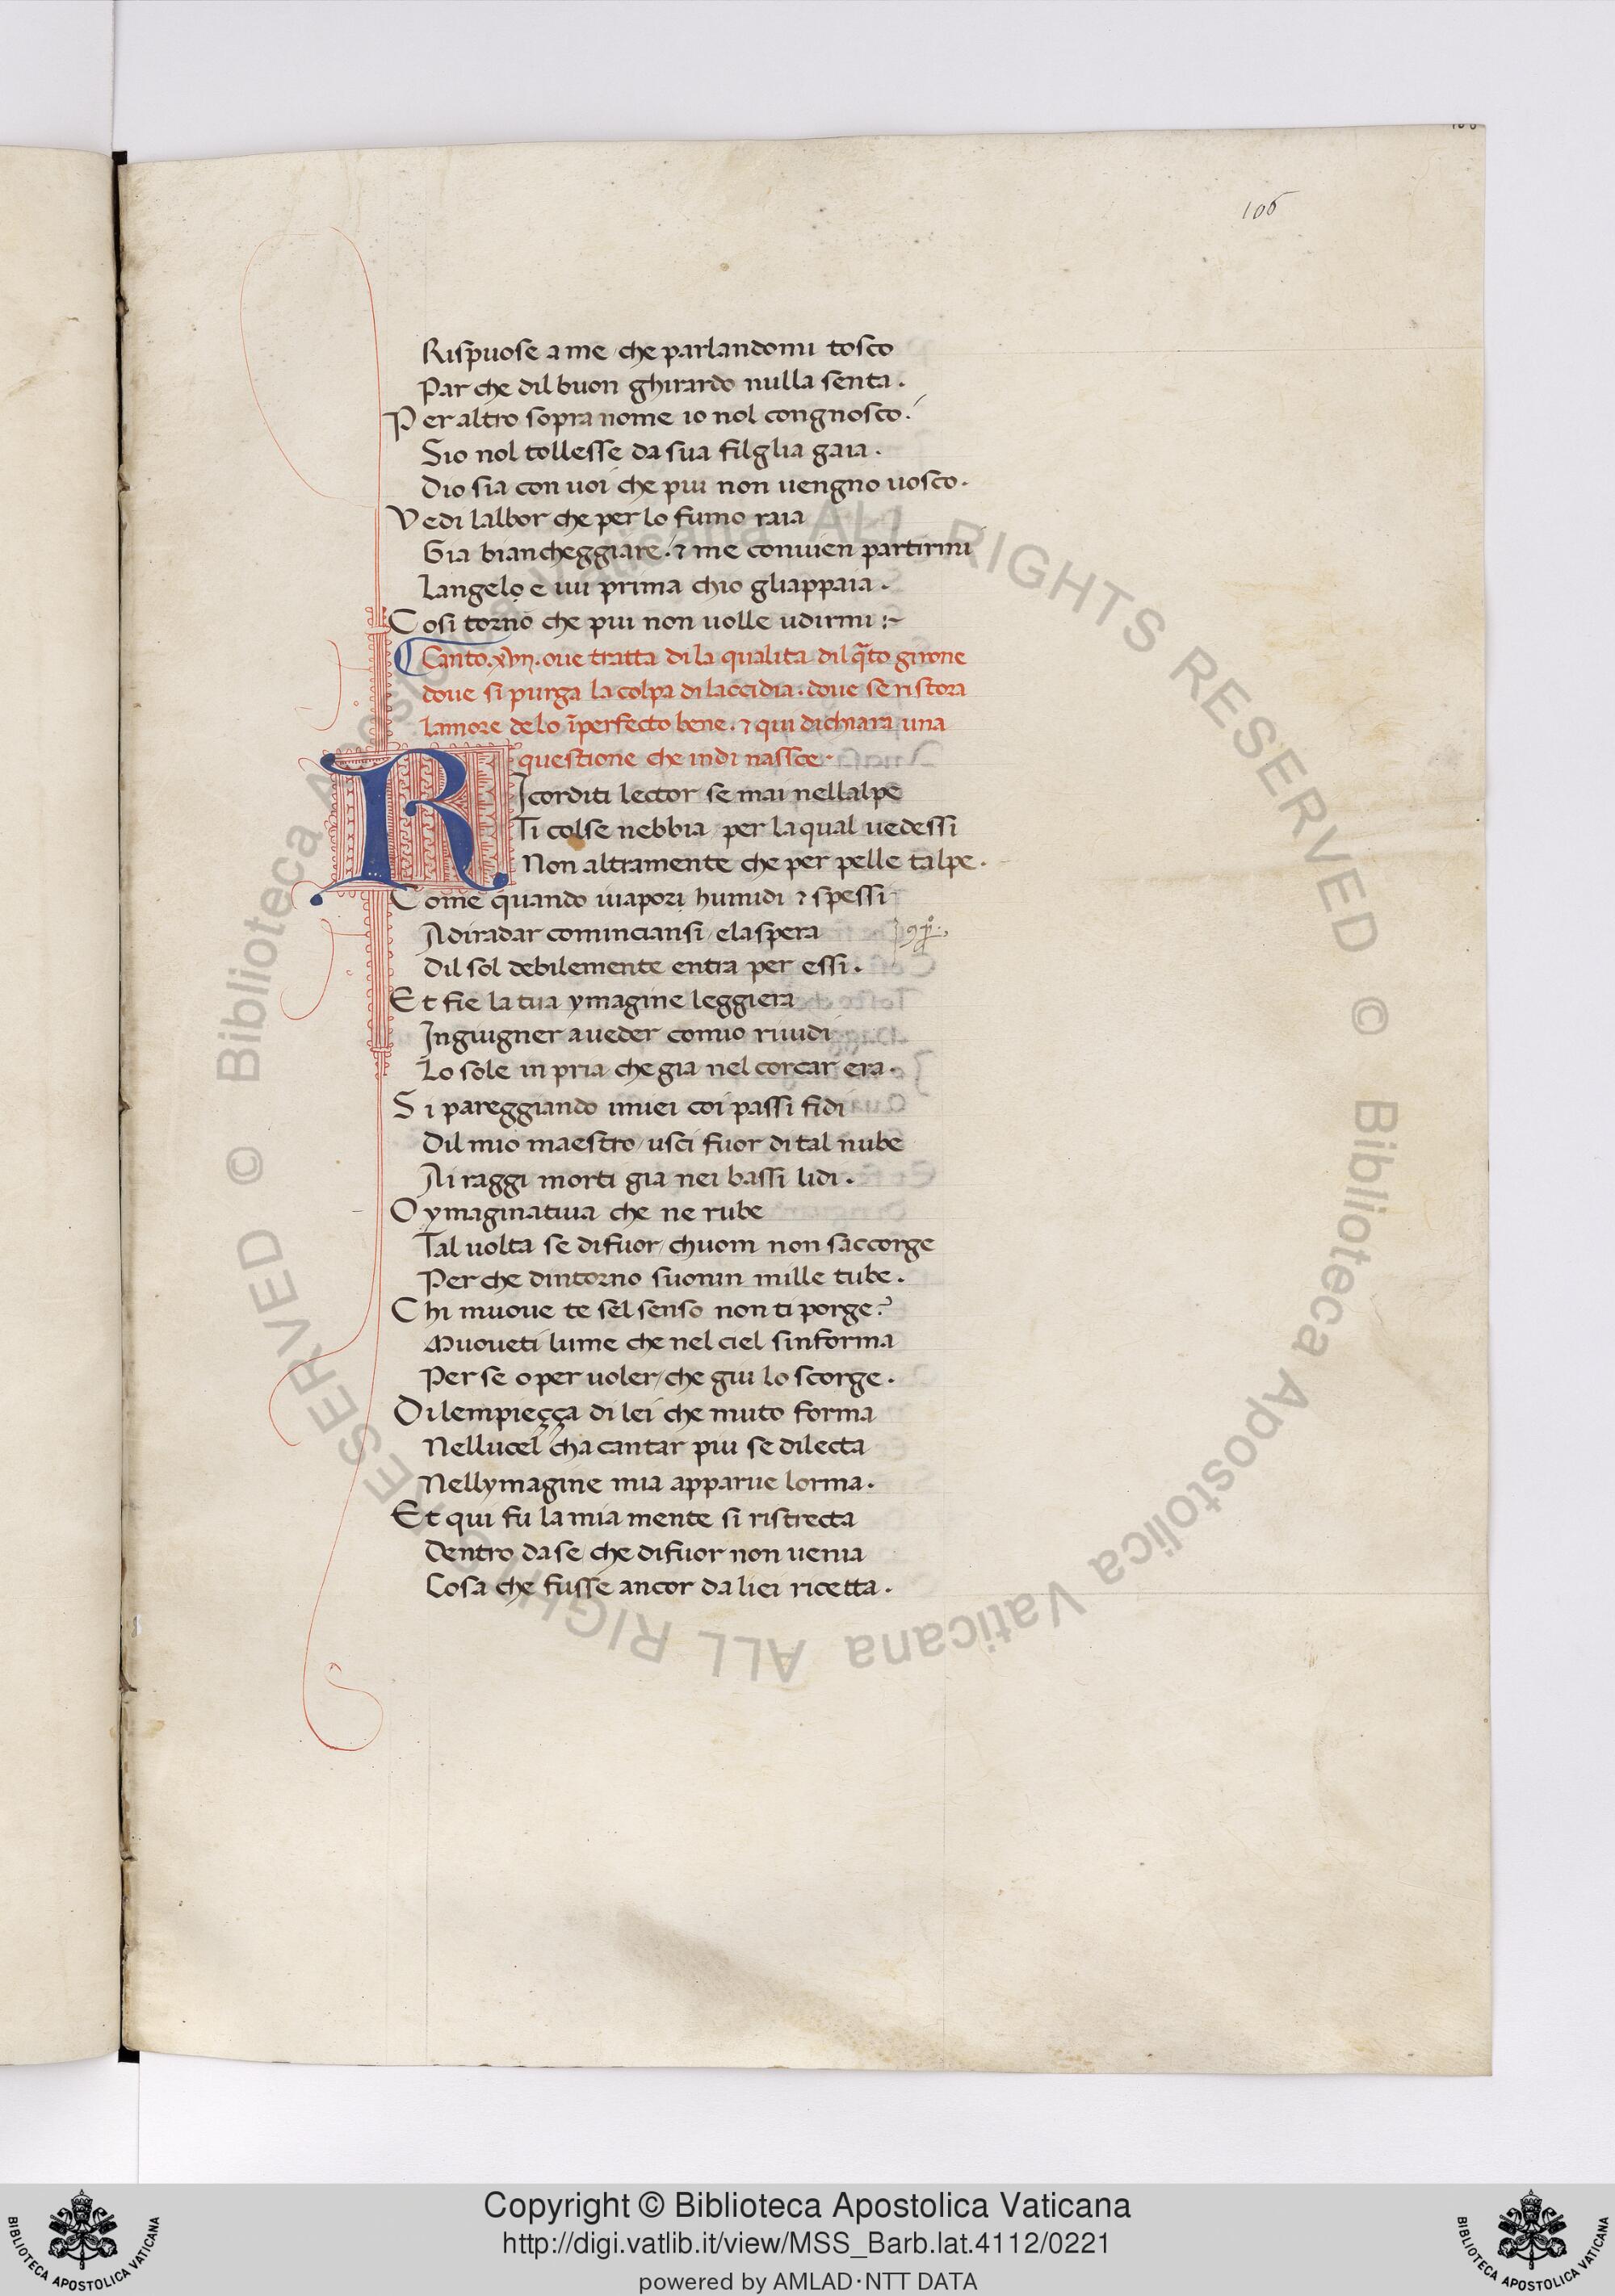 106
Rispuose a me che parlandomi tosco
Par che dil buon ghirardo nulla senta.
Per altro sopra nome io nol congnosco.
Sio nol tollesse da sua filglia gaia.
Dio sia con uoi che piu non uengno uosco.
Vedi lalbor che per lo fumo raia
Gia biancheggiare. & me conuien partirmi
Langelo e iui prima chio gliappaia.
Cosi torno che piu non uolle udirmi :~
Canto.xvij.oue tratta di la qualita dil q̄to girone
doue si purga la colpa di laccidia. doue se ristora
lamore de lo īperfecto bene. & qui dichiara una
questione che indi nassce.
RIcorditi lector se mai nellalpe
Ti colse nebbia per la qual uedessi
Non altramente che per pelle talpe.
Come quando iuapori humidi & spessi
A diradar cominciansi/ela spera
Dil sol debilemente entra per essi.
Et fie la tua ymagine leggiera
Ingiugner a ueder comio riuidi
Lo sole in pria che gia nel corcar era.
Si pareggiando imiei coi passi fidi
Dil mio maestro/usci fuor di tal nube
Ai raggi morti gia nei bassi lidi.
O ymaginatiua che ne rube
Tal uolta se difuor/chuom non saccorge
Perche dintorno suonin mille tube.
Chi muoue te sel senso non ti porge?
Muoueti lume che nel ciel sinforma
Per se o per uoler/che giu lo scorge.
Di lempieçça di lei che muto forma
Nellucel cha cantar piu se dilecta
Nellymagine mia apparue lorma.
Et qui fu la mia mente si ristrecta
Dentro da se/che difuor non uenia
Cosa che fusse ancor da liei ricetta.
© Biblioteca Apostolica Vaticana ALL RIGHTS RESERVED
© Biblioteca Apostolica Vaticana ALL RIGHTS RESERVED
Copyright © Biblioteca Apostolica Vaticana
http://digi.vatlib.it/view/MSS_Barb.lat.4112/0221
powered by AMLAD·NTT DATA
BIBLIOTECA APOSTOLICA VATICANA
BIBLIOTECA APOSTOLICA VATICANA